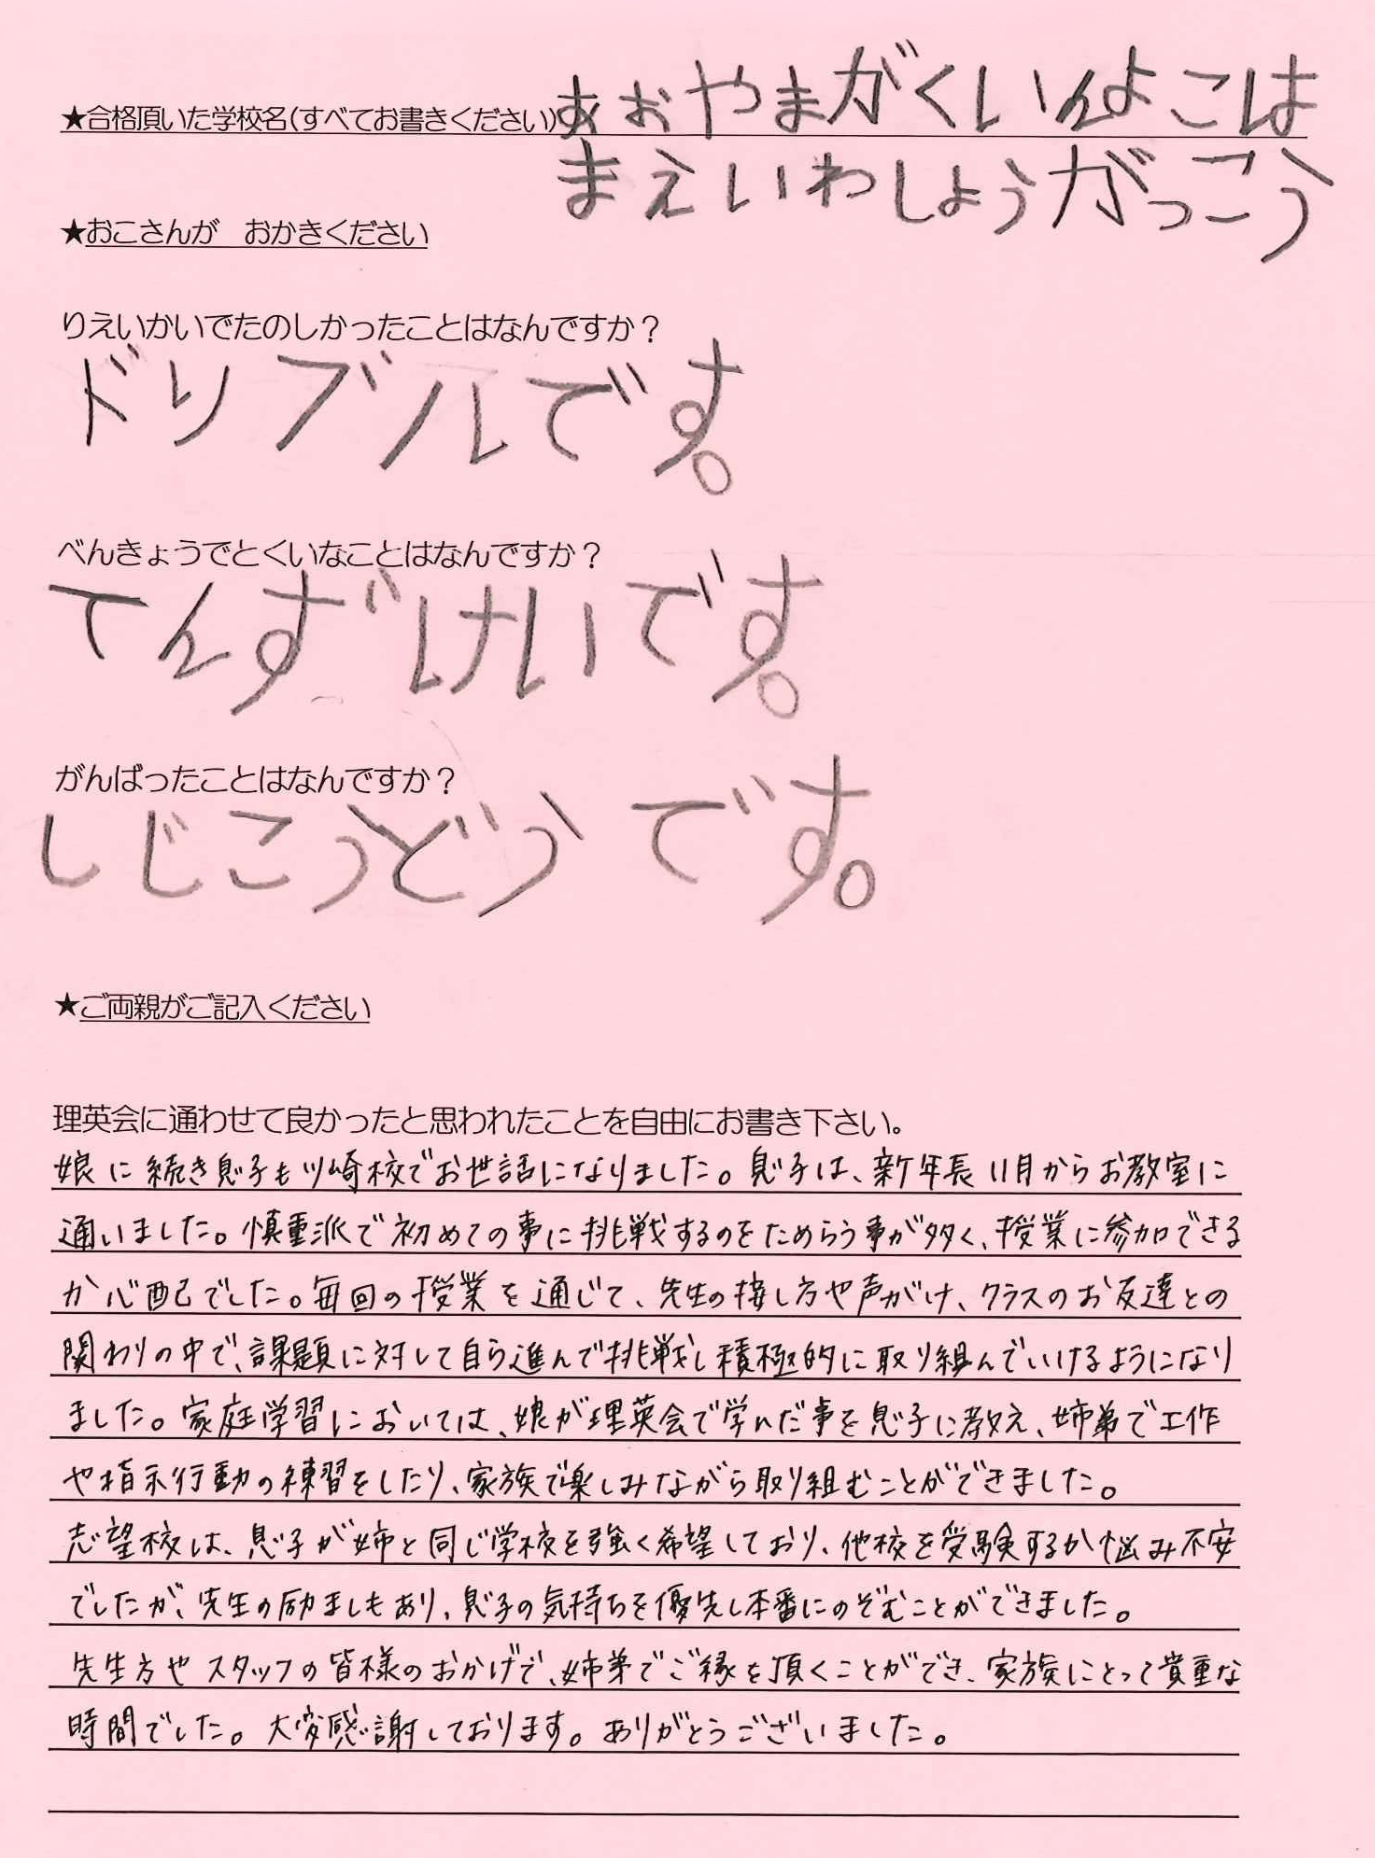 ★合格頂いた学校名(すべてお書きください)あおやまがくいんよこは
まえいわしょうがっこう
★おこさんが おかきください
りえいかいでたのしかったことはなんですか?
ドリブルです。
べんきょうでとくいなことはなんですか?
てんずけいです。
がんばったことはなんですか?
しじこうどうです。
★ご両親がご記入ください
理英会に通わせて良かったと思われたことを自由にお書き下さい。
娘に続き息子も川崎校でお世話になりました。息子は、新年長11月からお教室に
通いました。慎重派で初めての事に挑戦するのをためらう事が多く、授業に参加できる
か心配でした。毎回の授業を通じて、先生の接し方や声がけ、クラスのお友達との
関わりの中で、課題に対して自ら進んで挑戦し積極的に取り組んでいけるようになり
ました。家庭学習においては、娘が理英会で学んだ事を息子に教え、姉弟で工作
や指示行動の練習をしたり、家族で楽しみながら取り組むことができました。
志望校は、息子が姉と同じ学校を強く希望しており、他校を受験するか悩み不安
でしたが、先生の励ましもあり、息子の気持ちを優先し本番にのぞむことができました。
先生方やスタッフの皆様のおかげで、姉弟でご縁を頂くことができ、家族にとって貴重な
時間でした。大変感謝しております。ありがとうございました。